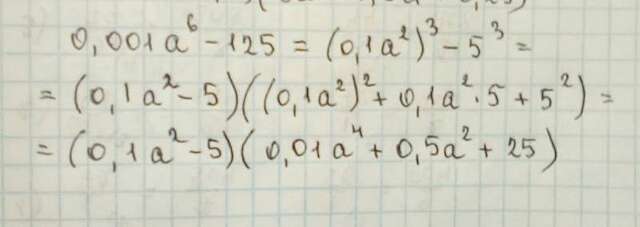 0,001a⁶ - 125 = (0,1a²)³ - 5³ =
= (0,1a² - 5)((0,1a²)² + 0,1a² · 5 + 5²) =
= (0,1a² - 5)(0,01a⁴ + 0,5a² + 25)